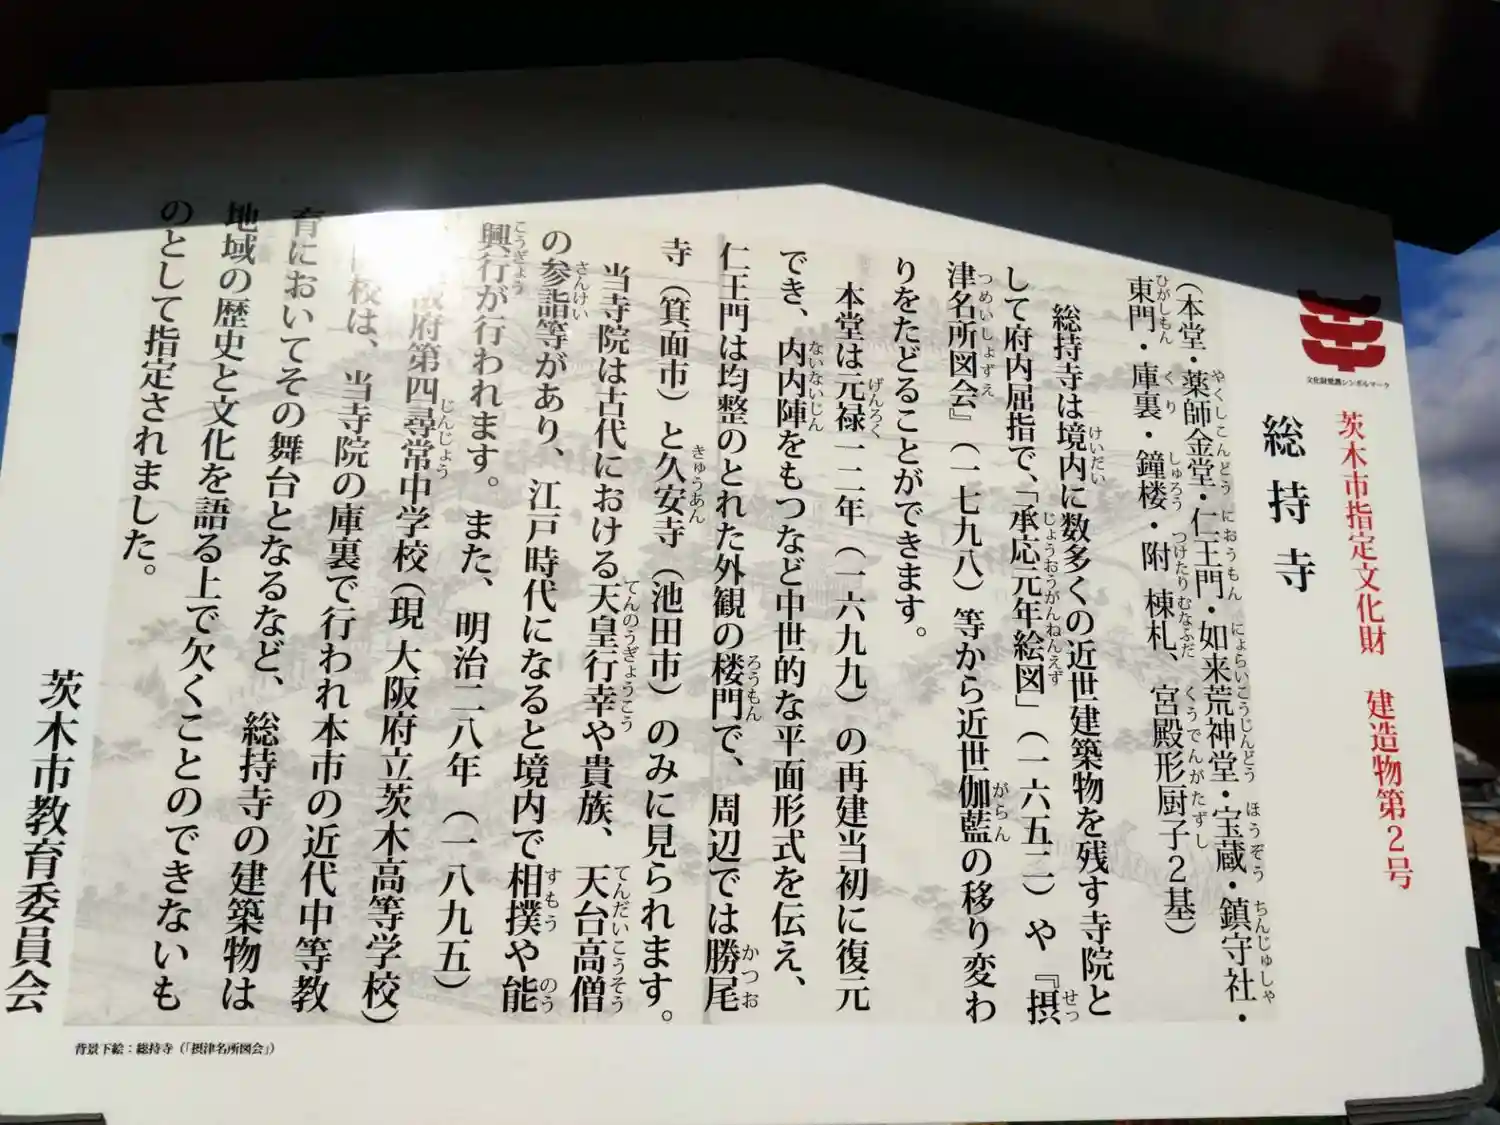 文化財愛護シンボルマーク
茨木市指定文化財　建造物第2号
総持寺
（本堂・薬師金堂・仁王門・如来荒神堂・宝蔵・鎮守社・
東門・庫裏・鐘楼・附 棟札、宮殿形厨子2基）
総持寺は境内に数多くの近世建築物を残す寺院と
して府内屈指で、「承応元年絵図」（一六五二）や『摂
津名所図会』（一七九八）等から近世伽藍の移り変わ
りをたどることができます。
本堂は元禄一二年（一六九九）の再建当初に復元
でき、内内陣をもつなど中世的な平面形式を伝え、
仁王門は均整のとれた外観の楼門で、周辺では勝尾
寺（箕面市）と久安寺（池田市）のみに見られます。
当寺院は古代における天皇行幸や貴族、天台高僧
の参詣等があり、江戸時代になると境内で相撲や能
興行が行われます。また、明治二八年（一八九五）
阪府第四尋常中学校（現 大阪府立茨木高等学校）
校は、当寺院の庫裏で行われ本市の近代中等教
育においてその舞台となるなど、総持寺の建築物は
地域の歴史と文化を語る上で欠くことのできないも
のとして指定されました。
茨木市教育委員会
背景下絵：総持寺（「摂津名所図会」）